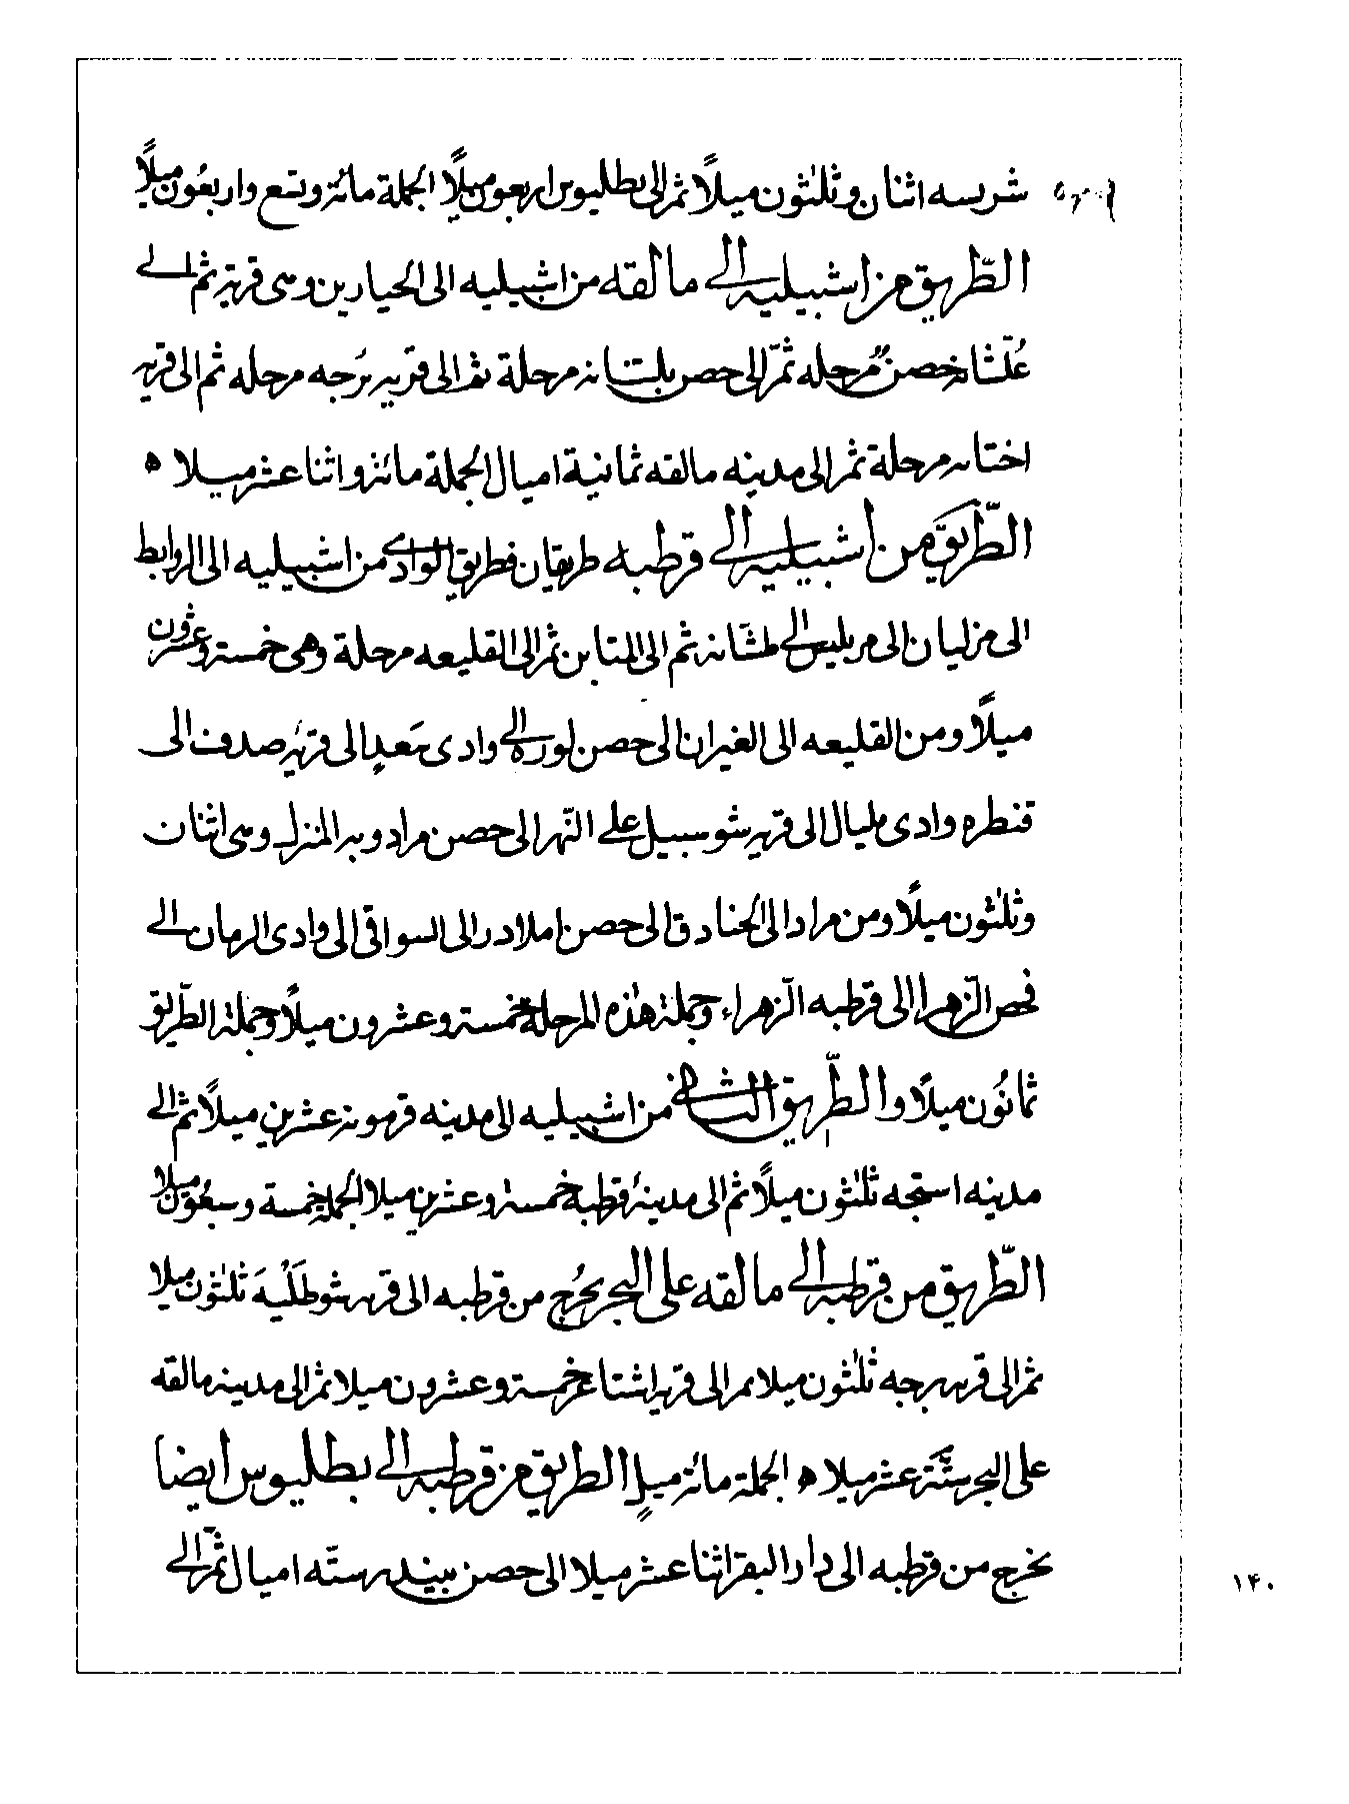 شريسه اثنان وثلثون ميلاً ثم الى بطليوس اربعون ميلاً الجملة مائة وتسع واربعون ميلاً
الطّريق من اشبيلية الى مالقه من اشبيليه الى الحيادين وهى قرية ثم الى
غلشانه حصن مرحله ثمّ الى حصن بلشانه مرحلة ثم الى قريه بَرجه مرحله ثم الى قريه
اختانه مرحلة ثم الى مدينه مالقه ثمانية اميال الجملة مائة واثنا عشر ميلا ه
الطّريق من أشبيلية الى قرطبه طريقان فطريق الوادى من اشبيليه الى الروابط
الى مزليان الى مربليس الى طشانة ثم الى المتابن ثم الى القليعه مرحلة وهى خمسة وعشرون
ميلاً ومن القليعه الى الغيران الى حصن لوره الى وادى معد الى قرية صدف الى
قنطره وادى مليال الى قرية شوسبيل على النّهر الى حصن مراد وبه المنزل وهى اثنان
وثلثون ميلاً ومن مراد الى الخنادق الى حصن املادر الى السواقى الى وادى الرمان الى
فحص الزّهرا الى قرطبه الزّهراء وجملة هذه المرحلة خمسة وعشرون ميلاً وجملة الطّريق
ثمانُون ميلاً والطّريق الثانى من اشبيليه الى مدينه قرمونة عشرين ميلاً ثم الى
مدينه استجه ثلثون ميلاً ثم الى مدينة قرطبة خمسة وعشرين ميلا الجملة خمسة وسبعُون ميلا
الطّريق من قرطبة الى مالقه على البحر يخُرج من قرطبه الى قريه شوطلَنْيهَ ثلثون ميلا
ثم الى قريه برجه ثلثون ميلا ثم الى قرية اشتاغر خمسة وعشرون ميلا ثم الى مدينة مالقه
على البحر ستّة عشر ميلا ه الجملة مائة ميلٍ الطريق من قرطبه الى بطليوس أيضا
يخرج من قرطبه الى دار البقر اثنا عشر ميلا الى حصن بيندر ستّه اميال ثمّ الى
١۴٠